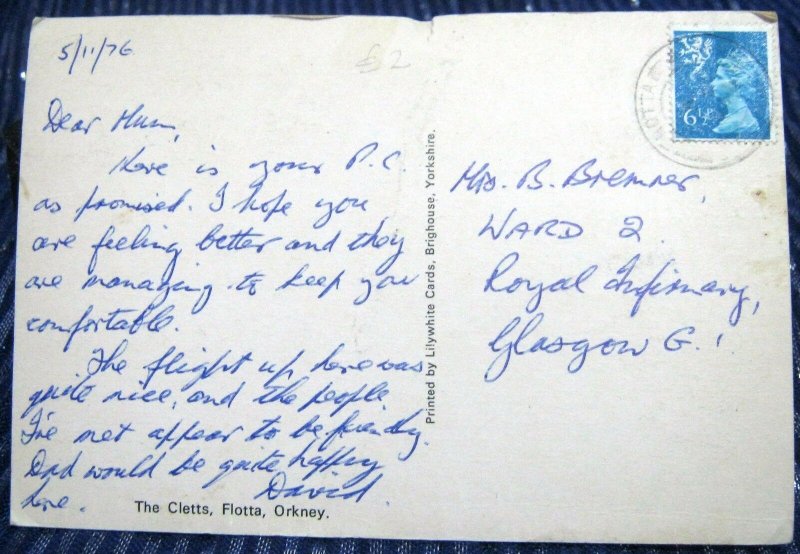 5/11/76
£2
Dear Mum,
Here is your P.C.
as promised. I hope you
are feeling better and they
are managing to keep you
comfortable.
The flight up here was
quite nice, and the people
I've met appear to be friendly.
Dad would be quite happy
here.
David.
The Cletts, Flotta, Orkney.
Printed by Lilywhite Cards, Brighouse, Yorkshire.
6½P
FLOTTA
Mrs. B. Bremner,
WARD 2.
Royal Infirmary,
Glasgow G.1